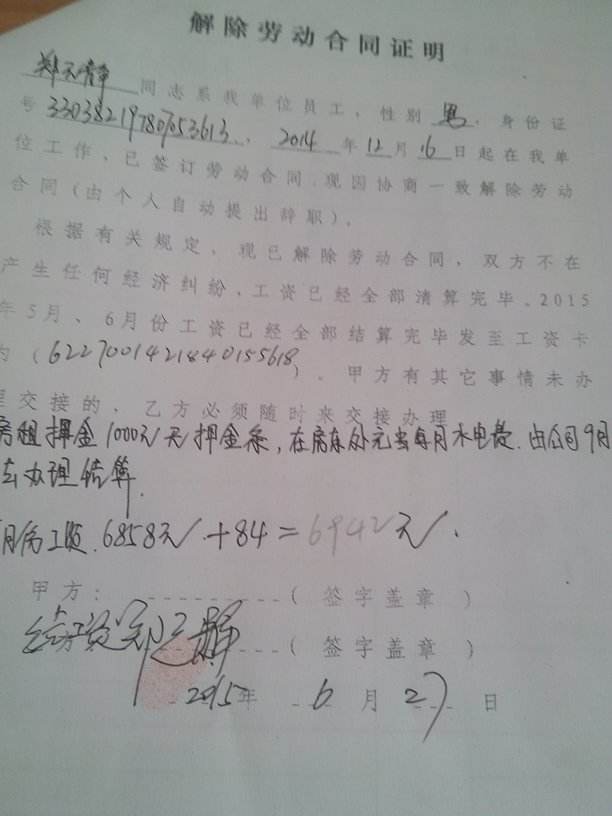 解除劳动合同证明
郑天静同志系我单位员工,性别男,身份证
号330382197807053613,2014年12月16日起在我单
位工作,已签订劳动合同.现因协商一致解除劳动
合同(由个人自动提出辞职)。
根据有关规定,现已解除劳动合同,双方不在
产生任何经济纠纷,工资已经全部清算完毕、2015
年5月、6月份工资已经全部结算完毕发至工资卡
内(6227001421840155618)。甲方有其它事情未办
理交接的,乙方必须随时来交接办理
房租押金1000元无押金条,在房东处元当每月水电费.由公司9月
去办理结算.
月份工资.6858元+84=6942元.
甲方:(签字盖章)
(签字盖章)
2015年6月27日